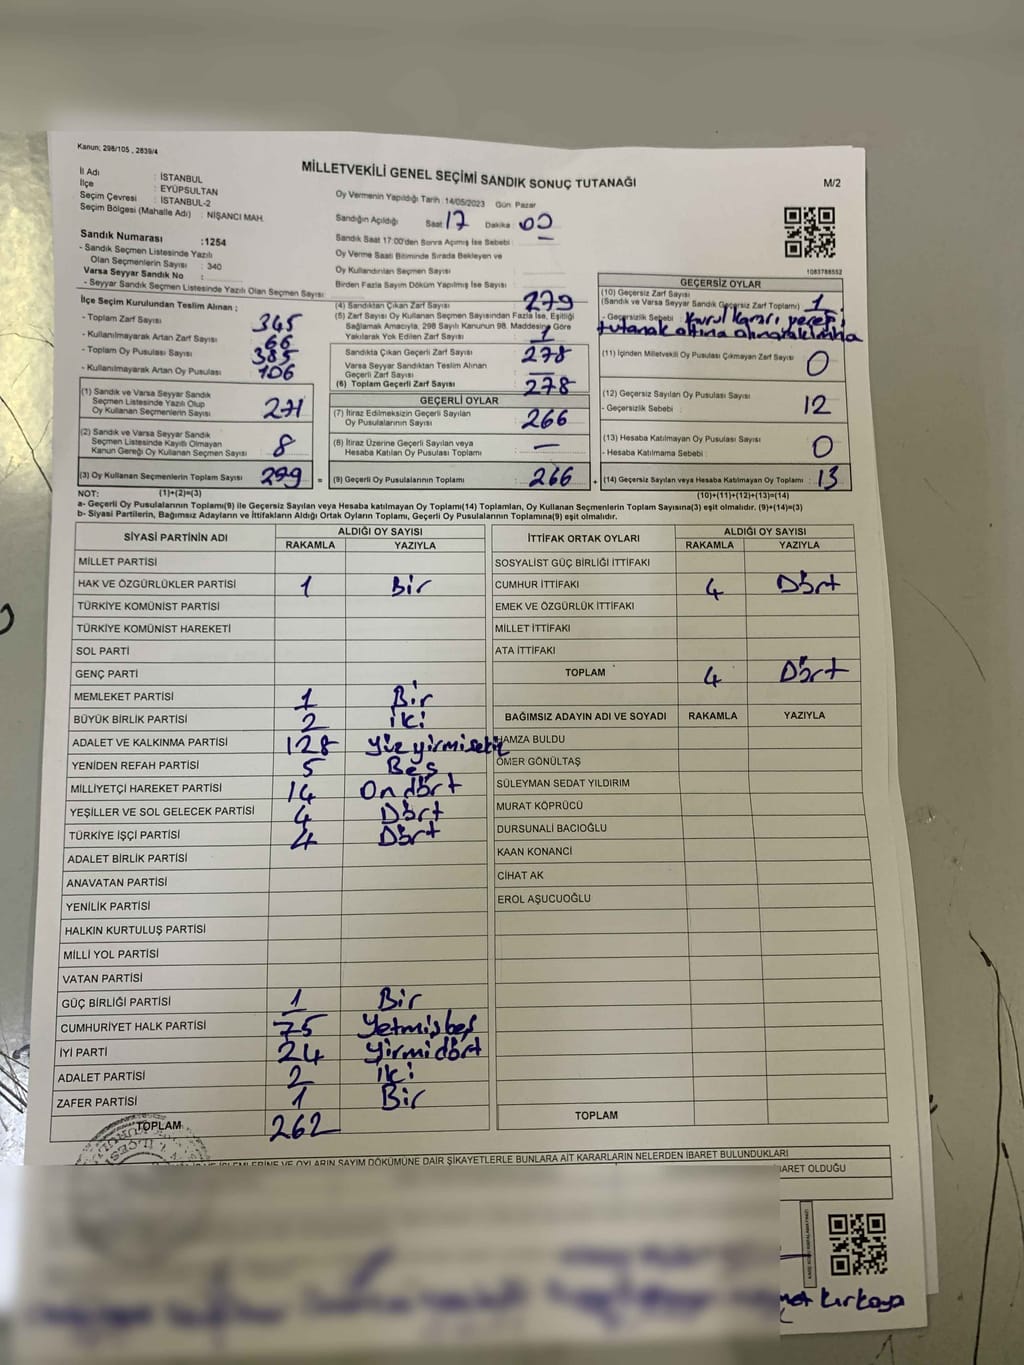 Kanun; 298/105 , 2839/4
MİLLETVEKİLİ GENEL SEÇİMİ SANDIK SONUÇ TUTANAĞI
M/2
İl Adı : İSTANBUL
İlçe : EYÜPSULTAN
Seçim Çevresi : İSTANBUL-2
Seçim Bölgesi (Mahalle Adı) : NİŞANCI MAH.
Sandık Numarası :1254
- Sandık Seçmen Listesinde Yazılı
Olan Seçmenlerin Sayısı : 340
Varsa Seyyar Sandık No :
- Seyyar Sandık Seçmen Listesinde Yazılı Olan Seçmen Sayısı :
Oy Vermenin Yapıldığı Tarih :14/05/2023 Gün Pazar
Sandığın Açıldığı Saat 17 Dakika 00
Sandık Saat 17:00'den Sonra Açımış İse Sebebi : —
Oy Verme Saati Bitiminde Sırada Bekleyen ve
Oy Kullandırılan Seçmen Sayısı
Birden Fazla Sayım Döküm Yapılmış İse Sayısı :
1083788552
İlçe Seçim Kurulundan Teslim Alınan ;
- Toplam Zarf Sayısı 345
- Kullanılmayarak Artan Zarf Sayısı 66
- Toplam Oy Pusulası Sayısı 385
- Kullanılmayarak Artan Oy Pusulası 106
(1) Sandık ve Varsa Seyyar Sandık
Seçmen Listesinde Yazılı Olup
Oy Kullanan Seçmenlerin Sayısı 271
(2) Sandık ve Varsa Seyyar Sandık
Seçmen Listesinde Kayıtlı Olmayan
Kanun Gereği Oy Kullanan Seçmen Sayısı 8
(3) Oy Kullanan Seçmenlerin Toplam Sayısı 279 =
(4) Sandıktan Çıkan Zarf Sayısı 279
(5) Zarf Sayısı Oy Kullanan Seçmen Sayısından Fazla İse, Eşitliği
Sağlamak Amacıyla, 298 Sayılı Kanunun 98. Maddesine Göre
Yakılarak Yok Edilen Zarf Sayısı 1
Sandıkta Çıkan Geçerli Zarf Sayısı 278
Varsa Seyyar Sandıktan Teslim Alınan
Geçerli Zarf Sayısı —
(6) Toplam Geçerli Zarf Sayısı 278
GEÇERLİ OYLAR
(7) İtiraz Edilmeksizin Geçerli Sayılan
Oy Pusulalarının Sayısı 266
(8) İtiraz Üzerine Geçerli Sayılan veya
Hesaba Katılan Oy Pusulası Toplamı —
(9) Geçerli Oy Pusulalarının Toplamı 266 +
GEÇERSİZ OYLAR
(10) Geçersiz Zarf Sayısı
(Sandık ve Varsa Seyyar Sandık Geçersiz Zarf Toplamı) 1
- Geçersizlik Sebebi : Kurul kararı
tutanak altına
(11) İçinden Milletvekili Oy Pusulası Çıkmayan Zarf Sayısı 0
(12) Geçersiz Sayılan Oy Pusulası Sayısı 12
- Geçersizlik Sebebi :
(13) Hesaba Katılmayan Oy Pusulası Sayısı 0
- Hesaba Katılmama Sebebi :
(14) Geçersiz Sayılan veya Hesaba Katılmayan Oy Toplamı : 13
NOT: (1)+(2)=(3)
(10)+(11)+(12)+(13)=(14)
a- Geçerli Oy Pusulalarının Toplamı(9) ile Geçersiz Sayılan veya Hesaba katılmayan Oy Toplamı(14) Toplamları, Oy Kullanan Seçmenlerin Toplam Sayısına(3) eşit olmalıdır. (9)+(14)=(3)
b- Siyasi Partilerin, Bağımsız Adayların ve İttifakların Aldığı Ortak Oyların Toplamı, Geçerli Oy Pusulalarının Toplamına(9) eşit olmalıdır.
SİYASİ PARTİNİN ADI ALDIĞI OY SAYISI
RAKAMLA YAZIYLA
MİLLET PARTİSİ
HAK VE ÖZGÜRLÜKLER PARTİSİ 1 Bir
TÜRKİYE KOMÜNİST PARTİSİ
TÜRKİYE KOMÜNİST HAREKETİ
SOL PARTİ
GENÇ PARTİ
MEMLEKET PARTİSİ 1 Bir
BÜYÜK BİRLİK PARTİSİ 2 iki
ADALET VE KALKINMA PARTİSİ 128 yüz yirmisekiz
YENİDEN REFAH PARTİSİ 5 Beş
MİLLİYETÇİ HAREKET PARTİSİ 14 On dört
YEŞİLLER VE SOL GELECEK PARTİSİ 4 Dört
TÜRKİYE İŞÇİ PARTİSİ 4 Dört
ADALET BİRLİK PARTİSİ
ANAVATAN PARTİSİ
YENİLİK PARTİSİ
HALKIN KURTULUŞ PARTİSİ
MİLLİ YOL PARTİSİ
VATAN PARTİSİ
GÜÇ BİRLİĞİ PARTİSİ 1 Bir
CUMHURİYET HALK PARTİSİ 75 Yetmişbeş
İYİ PARTİ 24 Yirmidört
ADALET PARTİSİ 2 iki
ZAFER PARTİSİ 1 Bir
TOPLAM 262
İTTİFAK ORTAK OYLARI ALDIĞI OY SAYISI
RAKAMLA YAZIYLA
SOSYALİST GÜÇ BİRLİĞİ İTTİFAKI
CUMHUR İTTİFAKI 4 Dört
EMEK VE ÖZGÜRLÜK İTTİFAKI
MİLLET İTTİFAKI
ATA İTTİFAKI
TOPLAM 4 Dört
BAĞIMSIZ ADAYIN ADI VE SOYADI RAKAMLA YAZIYLA
HAMZA BULDU
ÖMER GÖNÜLTAŞ
SÜLEYMAN SEDAT YILDIRIM
MURAT KÖPRÜCÜ
DURSUNALİ BACIOĞLU
KAAN KONANCİ
CİHAT AK
EROL AŞUCUOĞLU
TOPLAM
OYLARIN SAYIM DÖKÜMÜNE DAİR ŞİKAYETLERLE BUNLARA AİT KARARLARIN NELERDEN İBARET BULUNDUKLARI
İBARET OLDUĞU
Kırkaya